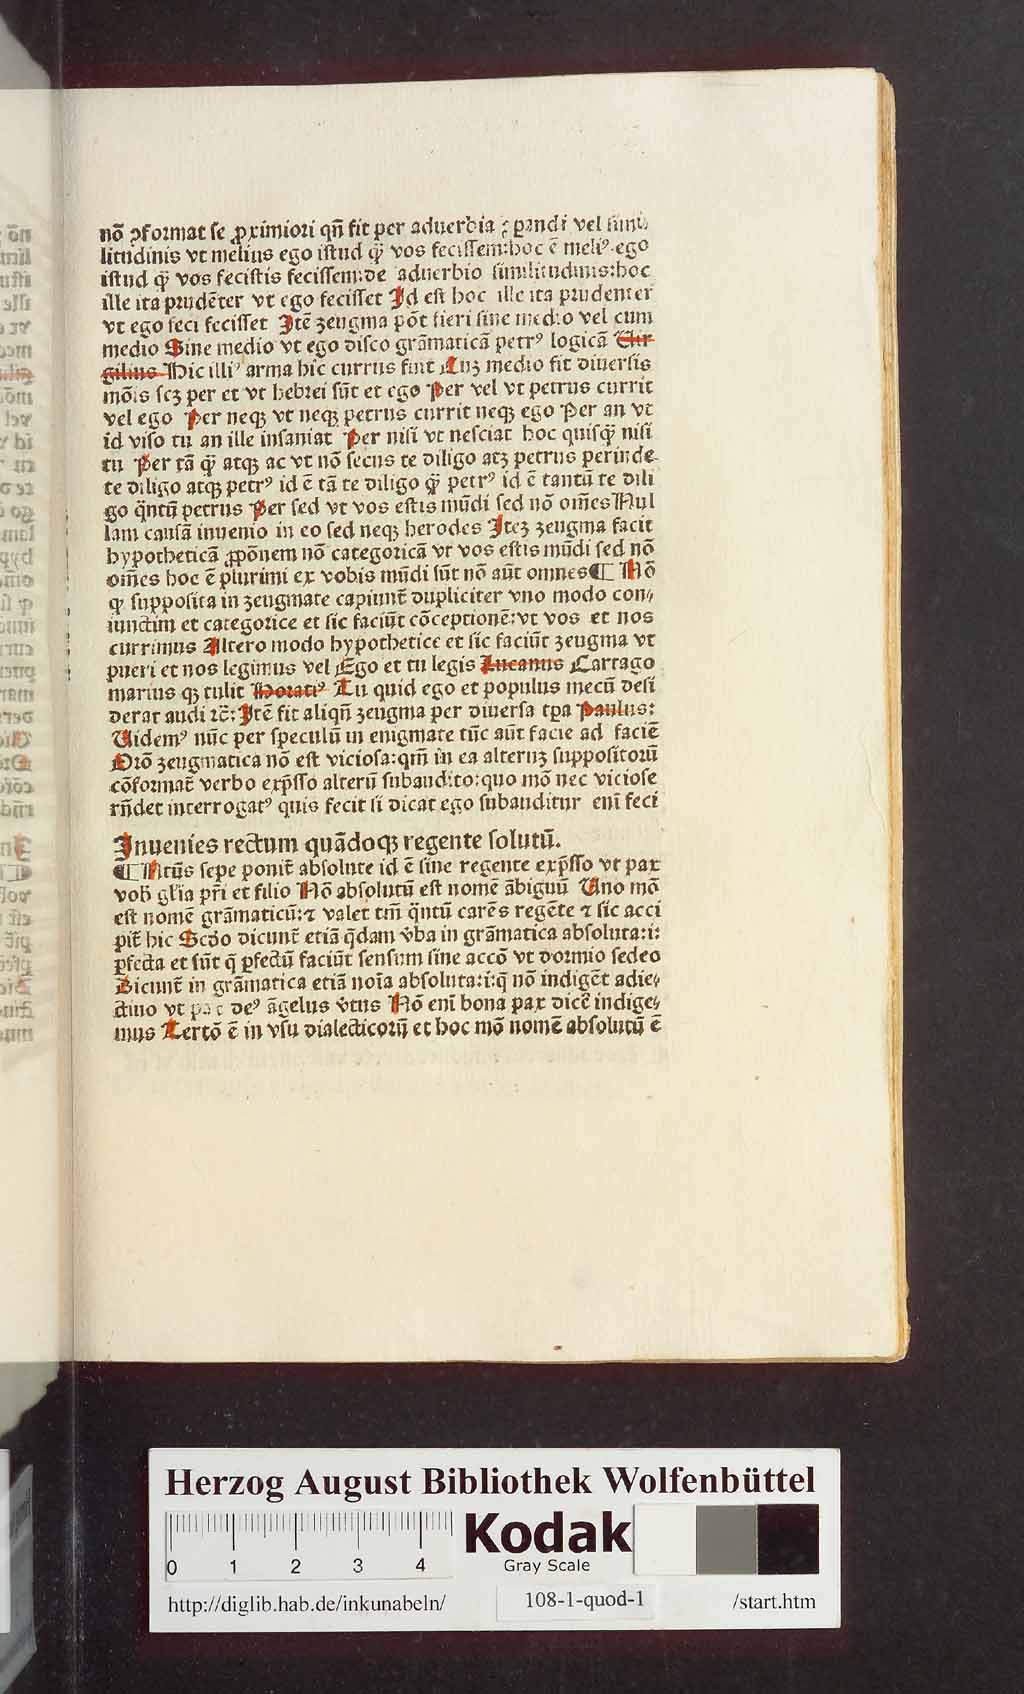 nō ꝯformat se ꝓximiori qn̄ fit per aduerbia ꝯpandi vel simi
litudinis vt melius ego istud q̄ʒ vos fecissem:hoc ē meliꝰ ego
istud q̄ʒ vos fecistis fecissem:de aduerbio similitudinis:hoc
ille ita prudēter vt ego fecisset Id est hoc ille ita prudenter
vt ego feci fecisset Itē zeugma pōt fieri sine medio vel cum
medio Sine medio vt ego disco grāmaticā petrꝰ logicā Uir
gilius Hic illiꝰ arma hic currus fuit Cuꝫ medio fit diuersis
mōis scꝫ per et vt hebrei sūt et ego Per vel vt petrus currit
vel ego Per neqꝫ vt neqꝫ petrus currit neqꝫ ego Per an vt
id viso tu an ille insaniat Per nisi vt nesciat hoc quisq̄ʒ nisi
tu Per tā q̄ʒ atqꝫ ac vt nō secus te diligo atqꝫ petrus perinde
te diligo atqꝫ petrꝰ id ē tā te diligo q̄ʒ petrꝰ id ē tantū te dili
go q̄ntū petrus Per sed vt vos estis mūdi sed nō om̄es Nul
lam causā inuenio in eo sed neqꝫ herodes Iteꝫ zeugma facit
hypotheticā ꝓpōnem nō categoricā vt vos estis mūdi sed nō
om̄es hoc ē plurimi ex vobis mūdi sūt nō aūt omnes ¶ Nō
ꝙ supposita in zeugmate capiunt̄ dupliciter vno modo con⸗
iunctim et categorice et sic faciūt cōceptionē:vt vos et nos
currimus Altero modo hypothetice et sic faciūt zeugma vt
pueri et nos legimus vel Ego et tu legis Lucanus Cartago
marius qꝫ tulit Horatiꝰ Tu quid ego et populus mecū desi
derat audi ꝛc̄: Itē fit aliqn̄ zeugma per diuersa tp̄a Paulus:
Uidemꝰ nūc per speculū in enigmate tūc aūt facie ad faciē
Orō zeugmatica nō est viciosa:qm̄ in ea alteruꝫ suppositorū
cōformat̄ verbo exp̄sso alterū subaudito:quo mō nec viciose
rn̄det interrogatꝰ quis fecit si dicat ego subauditur eni᷒ feci
Inuenies rectum quādoqꝫ regente solutū.
¶ Ntūs sepe ponit̄ absolute id ē sine regente exp̄sso vt pax
vob̄ gl̄ia pr̄i et filio Nō absolutū est nomē ābiguū Uno mō
est nomē grāmaticū:⁊ valet tm̄ q̄ntū carēs regēte ⁊ sic acci
pit̄ hic Scd̄o dicunt̄ etiā q̄dam v̄ba in grāmatica absoluta:i:
ꝑfecta et sūt q̄ ꝑfectū faciūt sensum sine accō vt dormio sedeo
Dicunt̄ in grāmatica etiā noīa absoluta:i:q̄ nō indigēt adie⸗
ctiuo vt pax deꝰ āgelus v̄tus Nō enī bona pax dicē indige⸗
mus Tertō ē in vsu dialecticorū et hoc mō nomē absolutū ē
Herzog August Bibliothek Wolfenbüttel
0 1 2 3 4
Kodak
Gray Scale
http://diglib.hab.de/inkunabeln/ 108-1-quod-1 /start.htm